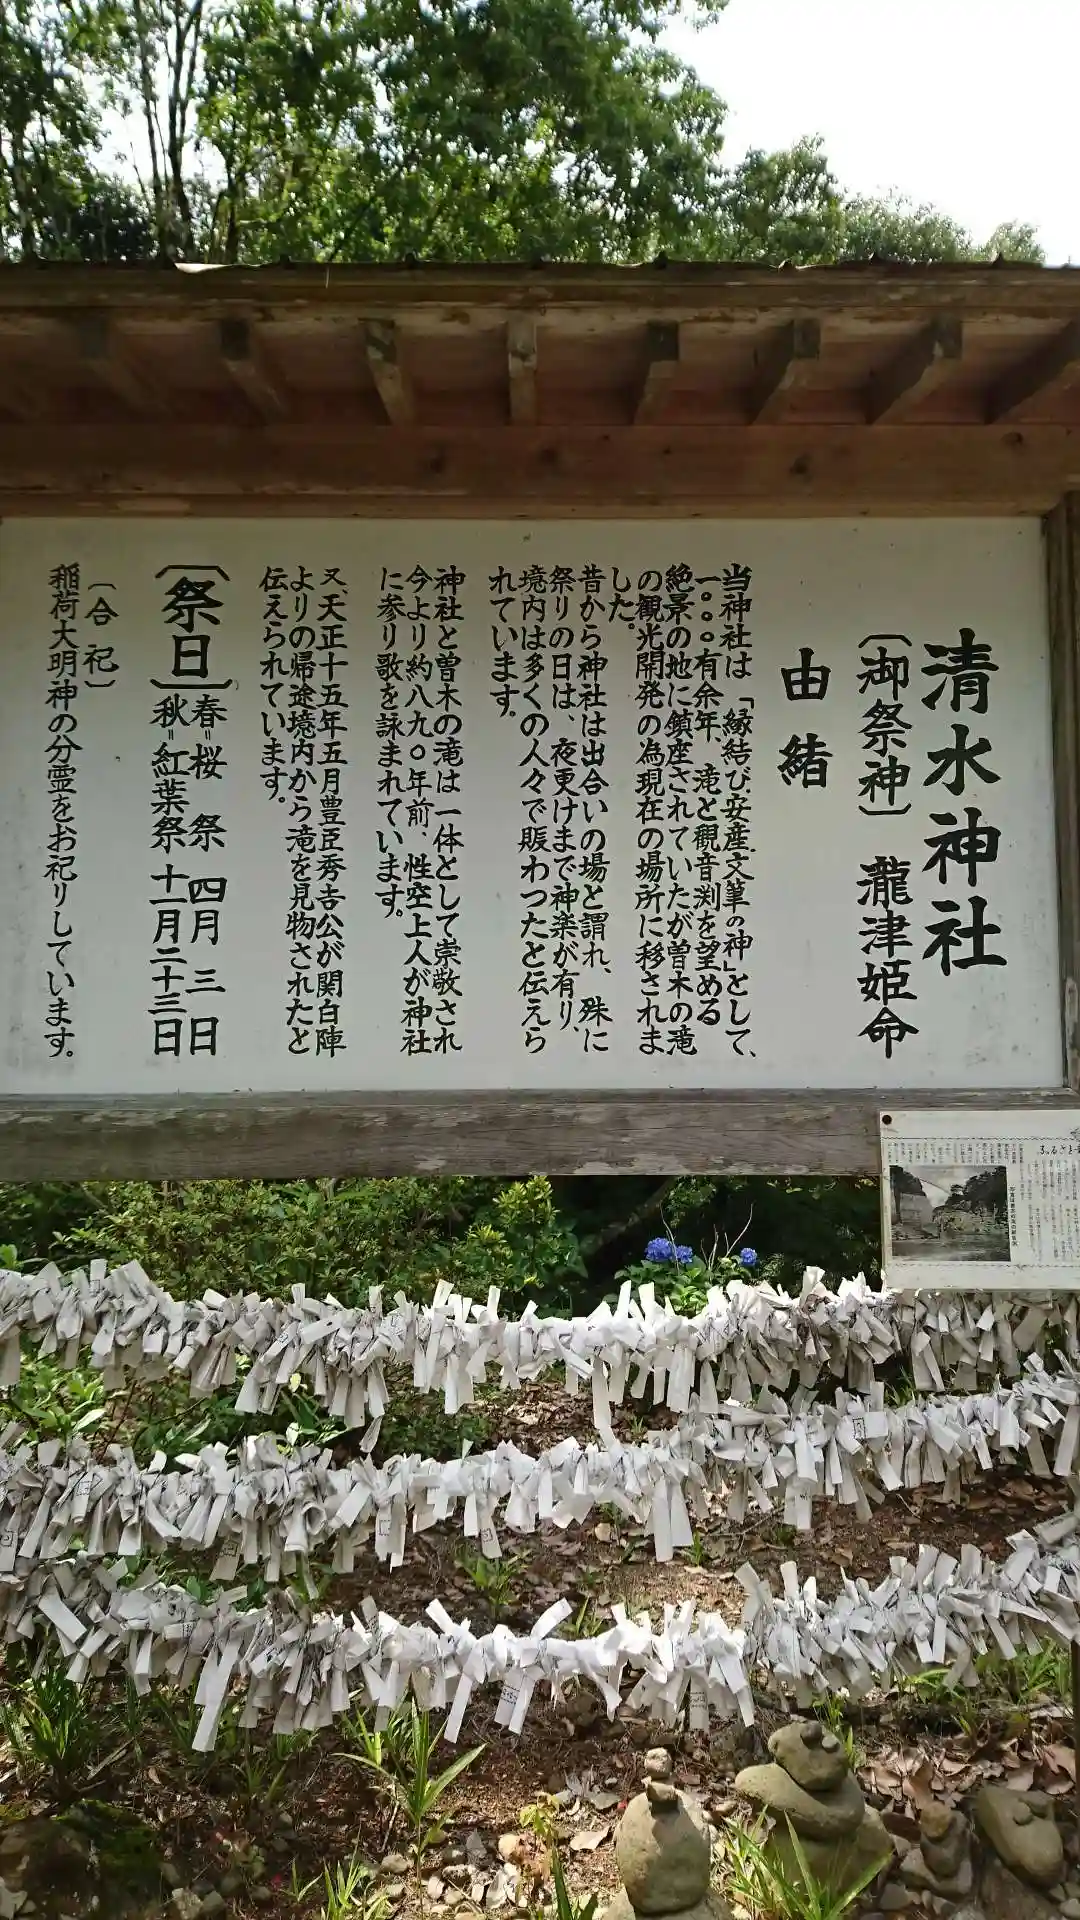 清水神社
〔御祭神〕 瀧津姫命
由結
当神社は「縁結び、安産、文筆の神」として、
一〇〇〇有余年、滝と観音渕を望める
絶景の地に鎮座されていたが曽木の滝
の観光開発の為現在の場所に移されま
した。
昔から神社は出合いの場と謂れ、殊に
祭りの日は、夜更けまで神楽が有り、
境内は多くの人々で賑わつたと伝えら
れています。
神社と曽木の滝は一体として崇敬され
今より約八九〇年前、性空上人が神社
に参り歌を詠まれています。
又、天正十五年五月豊臣秀吉公が関白陣
よりの帰途境内から滝を見物されたと
伝えられています。
〔祭日〕
春=桜祭 四月三日
秋=紅葉祭 十一月二十三日
〔合祀〕
稲荷大明神の分霊をお祀りしています。